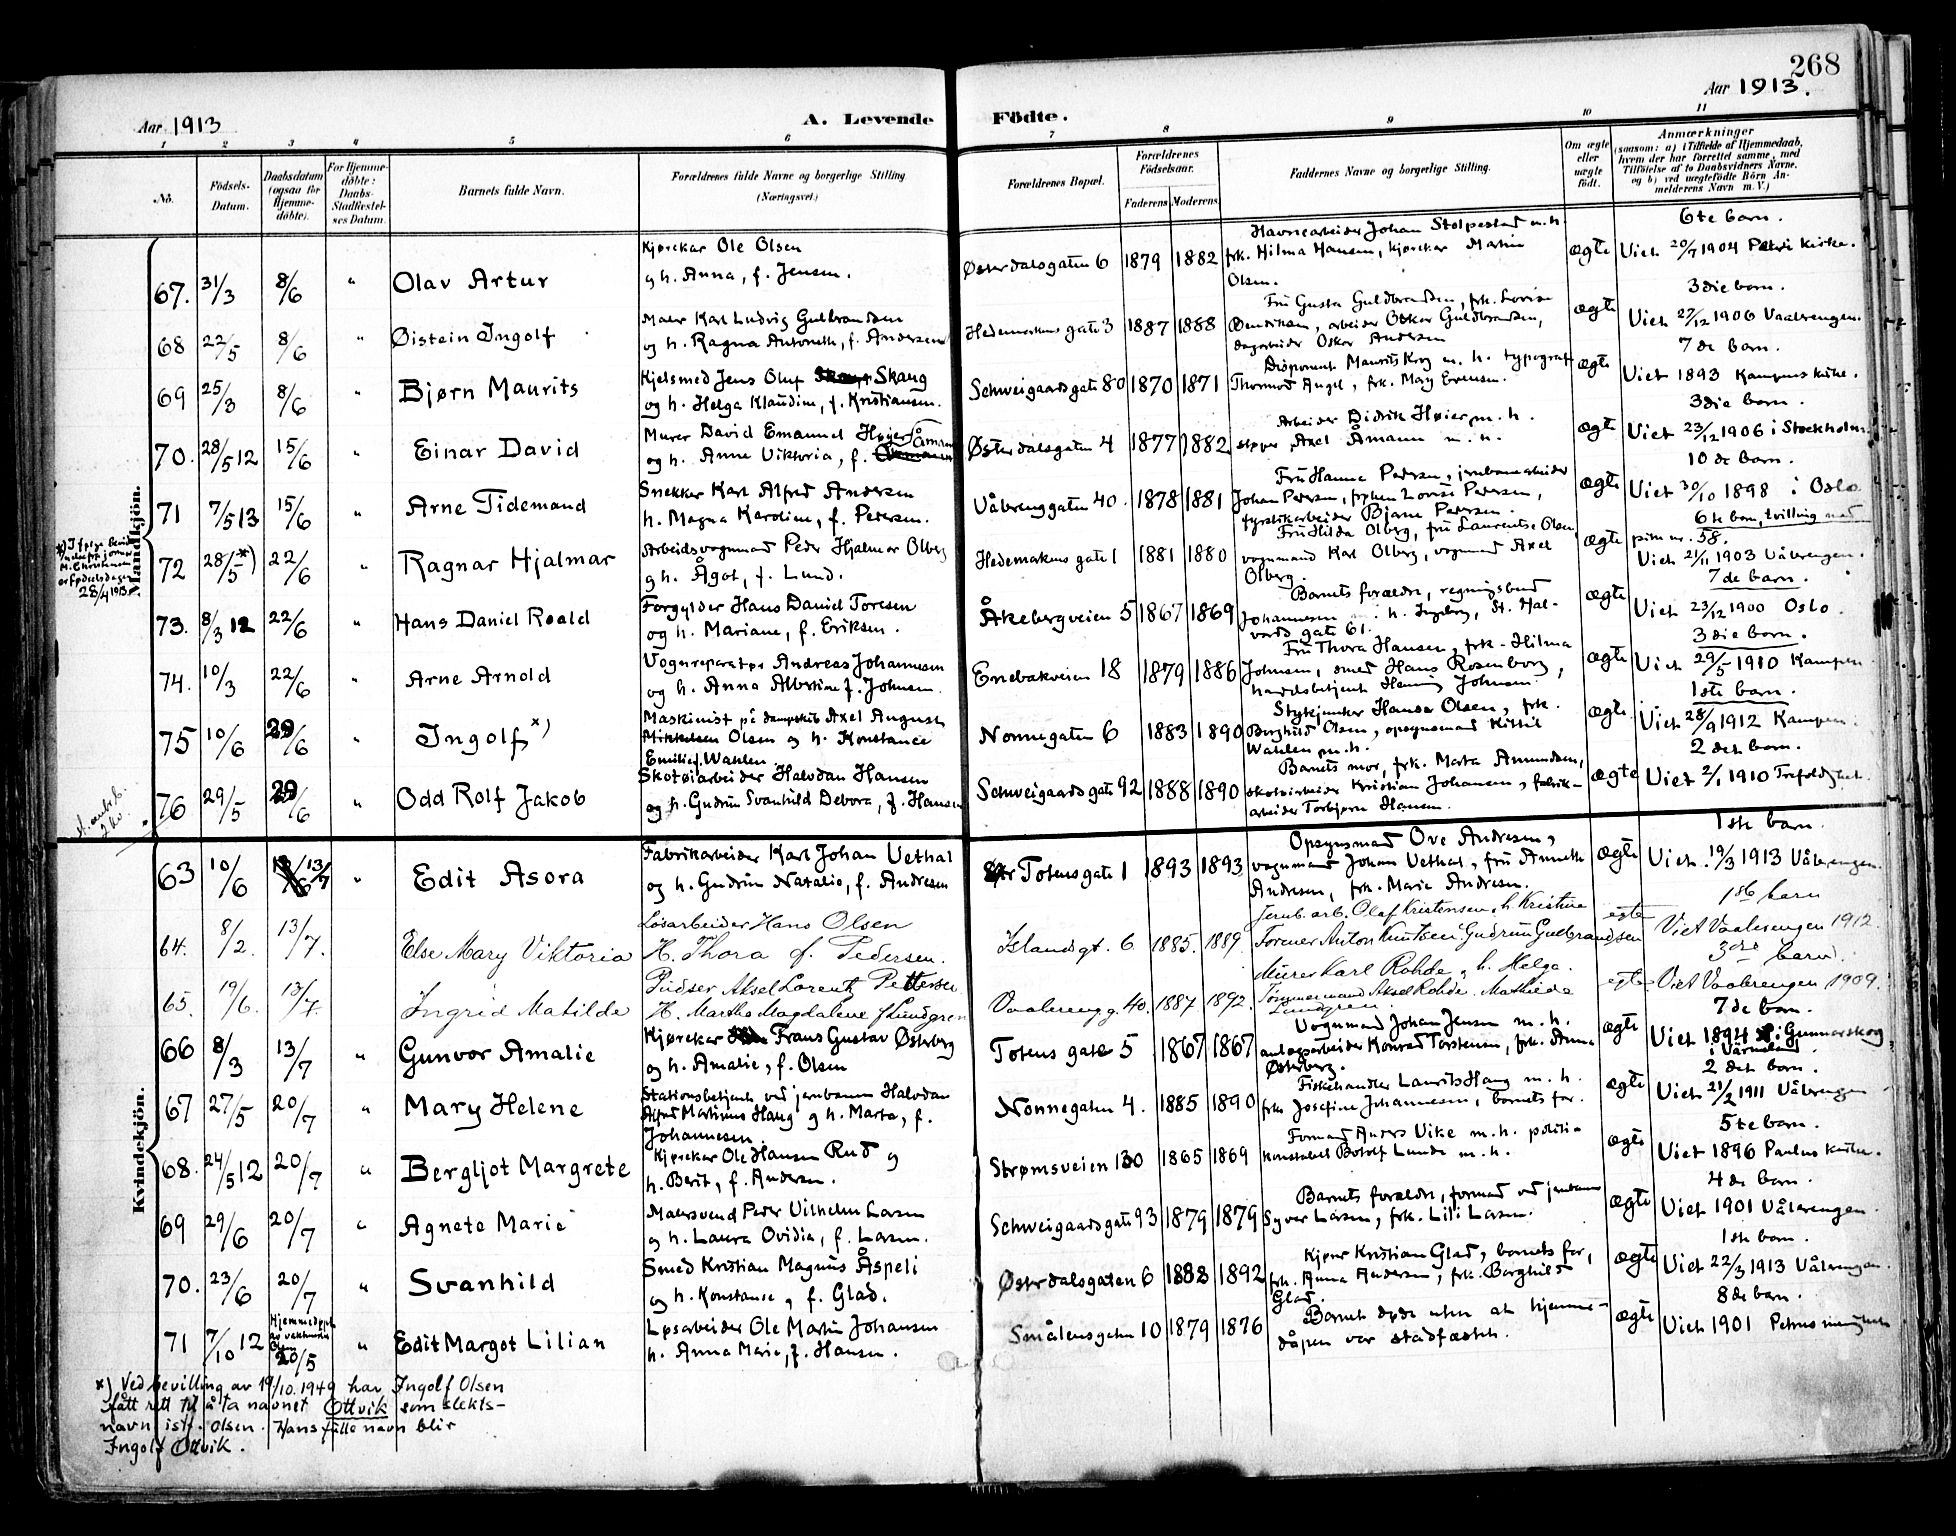 268
Aar 1913
A. Levende Födte.
Aar 1913.
1 2 3 4 5 6 7 8 9 10 11
No.
Födsels-Datum.
Daabsdatum (ogsaa for Hjemme-döbte).
For Hjemme-döbte: Daabs-Stadfæstel-ses Datum.
Barnets fulde Navn.
Forældrenes fulde Navne og borgerlige Stilling (Næringsvei.)
Forældrenes Bopæl.
Forældrenes Födselsaar.
Faderens Moderens
Faddernes Navne og borgerlige Stilling.
Om ægte eller uægte födt.
Anmærkninger (saasom: a) i Tilfælde af Hjemmedaab, hvem der har forrettet samme, med Tilföielse af to Daabsvidners Navne, og b) ved uægtefödte Börn An-melderens Navn m. V.)
Mandkjön.
67. 31/3 8/6 " Olav Artur
Kjørekar Ole Olsen
og h. Anna, f. Jensen.
Østerdalsgaten 6 1879 1882
Havnearbeider Johan Stolpestad m. h.
frk. Hilma Hansen, kjørekar Martin
Olsen.
ægte
6te barn.
Viet 20/7 1904 Petri kirke.
68 22/5 8/6 " Øistein Ingolf
Maler Karl Ludvig Gulbrandsen
og h. Ragna Antoneth, f. Andersen
Hedemarkens gate 3 1887 1888
Fru Gusta Guldbrandsen, frk. Lovise
Henriksen, arbeider Oskar Guldbrandsen,
dagarbeider Oskar Andersen
ægte
3die barn.
Viet 27/12 1906 Vaalerengen.
69 25/3 8/6 " Bjørn Maurits
Kjelsmed Jens Oluf Skaug
og h. Helga Klaudine, f. Kristiansen.
Schweigaardsgate 80 1870 1871
Disponent Maurits Krog m. h. typograf
Thormod Angel, frk. Mary Evensen.
ægte
7de barn.
Viet 1893 Kampens kirke.
70. 28/5 12 15/6 " Einar David
Murer David Emanuel Højer
og h. Anne Viktoria, f. Åmann
Østerdalsgaten 4 1877 1882
Arbeider Didrik Høier m. h.
støper Axel Åmann m. h.
ægte
3die barn.
Viet 23/12 1906 i Stockholm.
71 7/5 13 15/6 " Arne Tidemand
Snekker Karl Alfred Andersen
h. Magna Karoline, f. Petersen.
Vålerenggaten 40. 1878 1881
Fru Hanna Pedersen, jernbanearbeider
Johan Pedersen, frøken Lovise Pedersen,
fyrstikarbeider Bjarne Pedersen.
ægte
10de barn.
Viet 30/10 1898 i Oslo
72 28/5 *) 22/6 " Ragnar Hjalmar
Arbeidsvognmand Peder Hjalmar Olberg
og h. Ågot, f. Lund.
Hedemarkens gate 1 1881 1880
Fru Hilda Olberg, fru Laurentse Olsen,
vognmand Karl Olberg, vognmand Axel
Olberg.
ægte
6te barn, tvilling med
pike nr. 58.
Viet 21/11 1903 Vålerengen.
73. 8/3 12 22/6 " Hans Daniel Roald
Forgylder Hans Daniel Toresen
og h. Mariane, f. Eriksen.
Åkebergveien 5 1867 1869
Barnets forældre, regningsbud
Johannesen h. Ingeborg, St. Hal-
vards gate 61.
ægte
7de barn.
Viet 23/12 1900 Oslo.
74. 10/3 22/6 " Arne Arnold
Vognreparatør Andreas Johannesen
og h. Anna Albertine f. Johnsen.
Enebakveien 18 1879 1886
Fru Thora Hansen, frk. Hilma
Johnsen, smed Hans Rosenborg,
handelsbetjent Henning Johnsen
ægte
3die barn.
Viet 29/5 1910 Kampen
75 10/6 29/6 " Ingolf *)
Maskinist på dampskib Axel August
Mikkelsen Olsen og h. Konstance
Emilie f. Wahlen
Nonnegaten 6 1883 1890
Stykjunker Hansen Olsen, frk.
Borghild Olsen, opsynsmand Kittil
Wahlen m. h.
ægte
1ste barn.
Viet 28/9 1912 Kampen.
76 29/5 29/6 " Odd Rolf Jakob
Skotøiarbeider Halvdan Hansen
og h. Gudrun Svanhild Debora, f. Hansen
Schweigaards gate 92 1888 1890
Barnets mor, frk. Marta Amundsen,
skotøiarbeider Kristian Johansen, fabrik-
arbeider Torbjørn Hansen.
ægte
2det barn.
Viet 2/1 1910 Trefoldighet.
*) Ifølge
M. Christensen
er fødselsdagen
28/4 1913.
Kvindekjön.
63 10/6 13/7 " Edit Asora
Fabrikarbeider Karl Johan Vethal
og h. Gudrun Natalia, f. Andresen
Totensgate 1 1893 1893
Opsynsmand Ove Andresen,
vognmand Johan Vethal, fru Annette
Andresen, frk. Marie Andresen.
ægte
1ste barn.
Viet 19/3 1913 Vålerengen.
64. 8/2. 13/7. Else Mary Viktoria
Løsarbeider Hans Olsen
H. Thora f. Pedersen.
Islandsgt. 6 1885. 1889.
Jernb. arb. Olaf Kristensen, h. Kristine
Former Anton Knutsen, Gudrun Gulbrandsen
egte
1ste barn
Viet Vaalerengen 1912.
65. 19/6. 13/7. Ingrid Matilde
Pudser Aksel Lorentz Pettersen
H. Martha Magdalene f Lundgren
Vaalerengg. 40. 1887 1892.
Murer Karl Rohde, h. Helga.
Tømmermand Aksel Rohde. Mathilde
Lundgren
egte
3die barn.
Viet Vaalerengen 1909.
66 8/3 13/7 " Gunvor Amalie
Kjørekar Frans Gustav Østerberg
og h. Amalie, f. Olsen
Totens gate 5 1867 1867
Vognmand Johan Jensen m. h.
anlægsarbeider Konrad Torstensen, frk. Anna
Østerberg.
ægte
7de barn.
Viet 1894 i Gunnarskog
i Värmland.
67 27/5 20/7 " Mary Helene
Stationsbetjent ved jernbanen Halvdan
Alfred Martinius Haug og h. Marta, f.
Johannesen
Nonnegaten 4. 1885 1890
Fiskehandler Laurits Haug m. h.
frk. Josefine Johannesen, barnets far.
ægte
2det barn.
Viet 21/2 1911 Vålerengen
68. 24/5 12 20/7 " Bergljot Margrete
Kjørekar Ole Hansen Rud og
h. Berit, f. Andersen.
Strømsveien 130 1865 1869
Formand Anders Vike m. h. politi-
konstabel Botolf Lunde m. h.
ægte
5te barn.
Viet 1896 Paulus kirke.
69 29/6 20/7 " Agnete Marie
Malersvend Peder Vilhelm Larsen
og h. Laura Ovidia, f. Larsen.
Schweigaardsgate 93 1879 1879
Barnets forældre, formand ved jernbanen
Syver Larsen, frk. Lili Larsen.
ægte
4de barn.
Viet 1901 Vålerengen.
70. 23/6 20/7 " Svanhild
Smed Kristian Magnus Åspeli
og h. Konstanse, f. Glad.
Østerdalsgaten 6 1888 1892
Kjører Kristian Glad, barnets far,
frk. Anna Andersen, frk. Borghild
Glad.
ægte
1ste barn.
Viet 22/3 1913 Vålerengen.
71 7/10 12 Hjemmedøpt 20/5 " Edit Margot Lilian
Løsarbeider Ole Martin Johansen
h. Anna Marie, f. Hansen.
Smålensgaten 10 1879 1876
Barnet døde uten at hjemme-
dåpen var stadfæstet.
ægte
8de barn.
Viet 1901 Petrus menighet
*) Ved bevilling av 19/10.1949 har Ingolf Olsen
fått rett til å ta navnet Ottvik som slekts-
navn istf. Olsen. Hans fulle navn blir
Ingolf Ottvik.